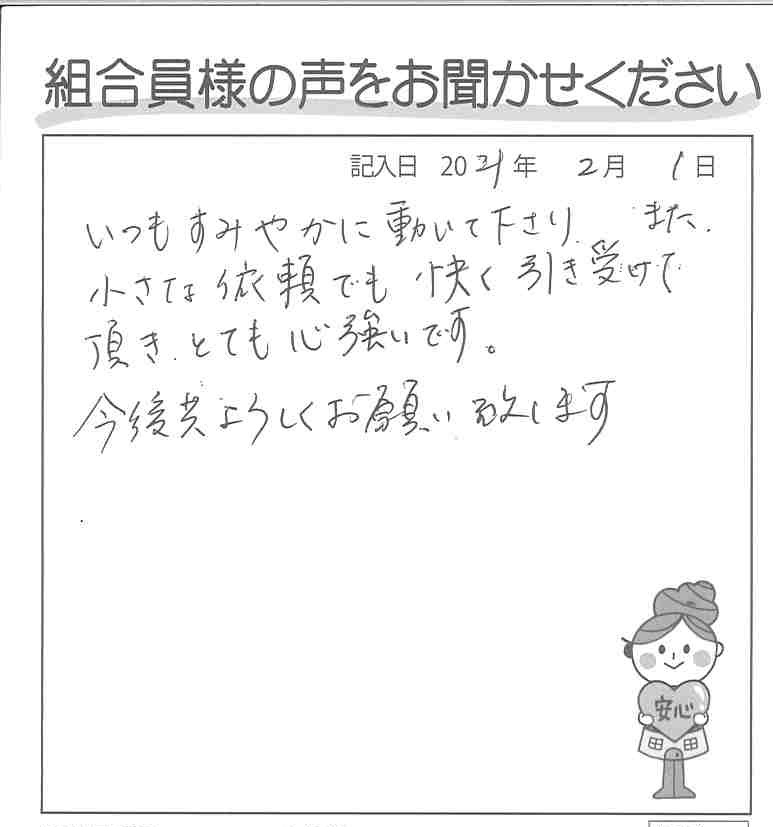 組合員様の声をお聞かせください
記入日 2021年 2月 1日
いつもすみやかに動いて下さり、また、
小さな依頼でも快く引き受けて
頂き、とても心強いです。
今後共よろしくお願い致します
安心